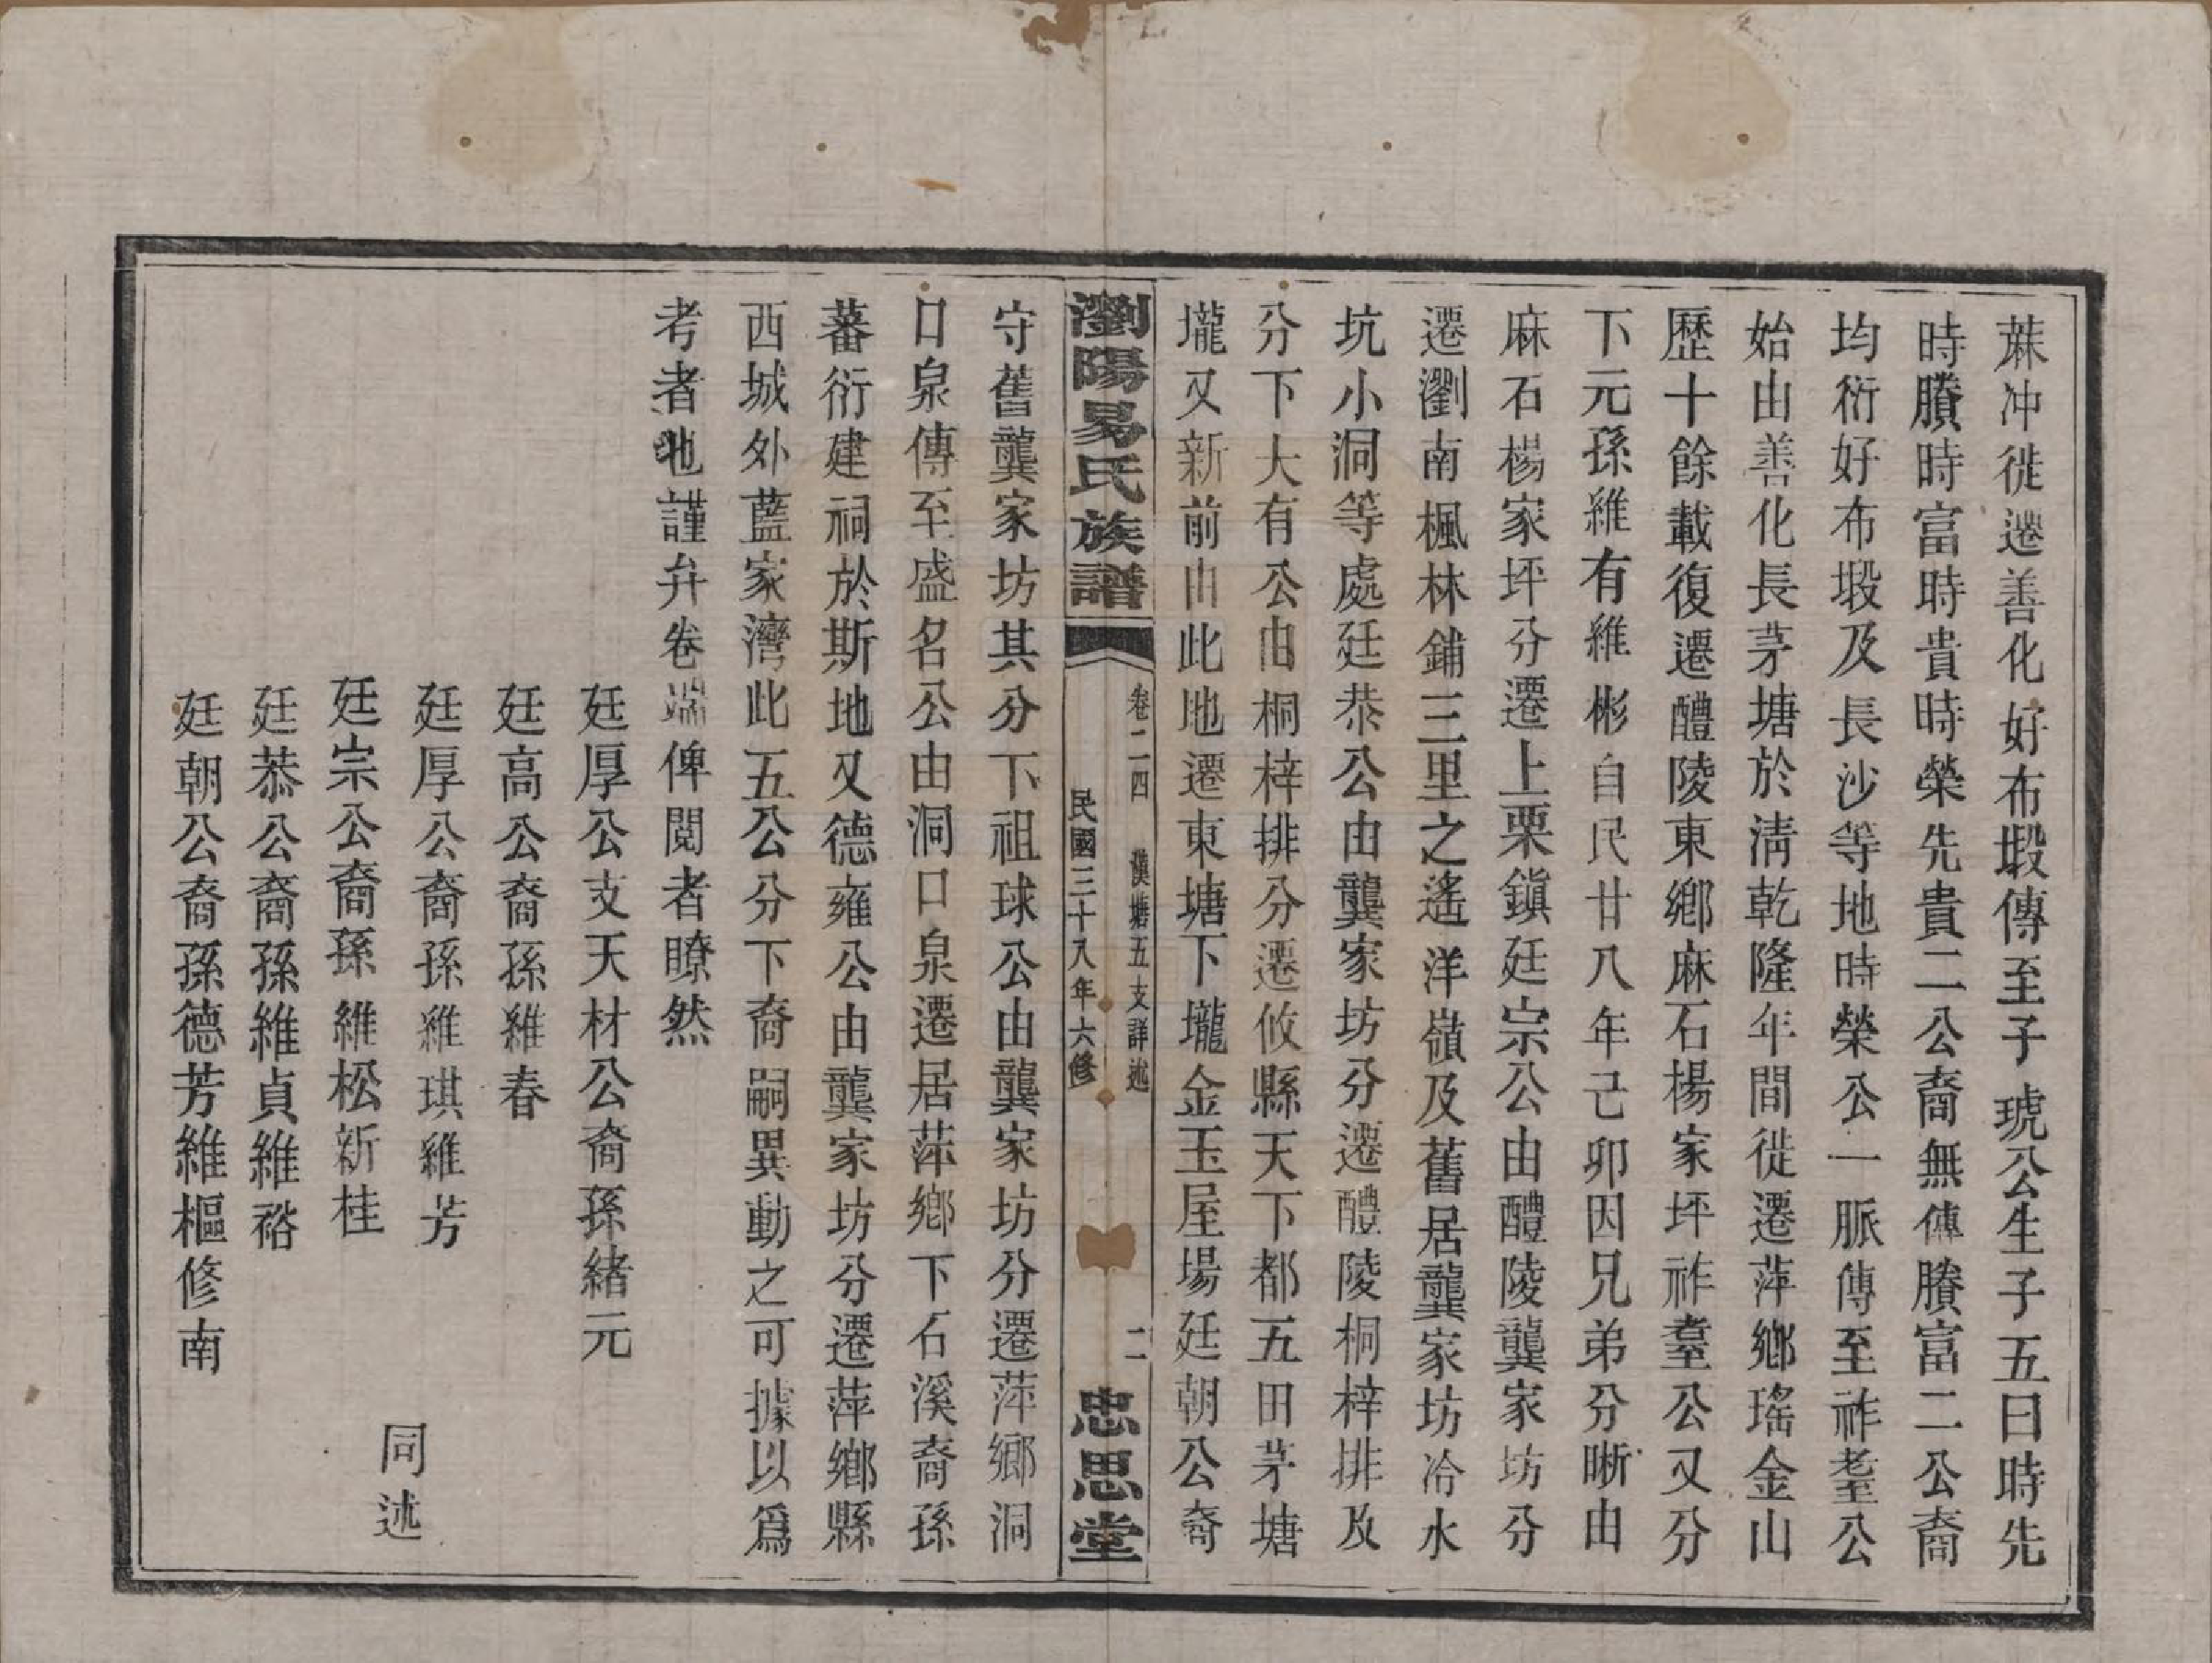 蔴冲徙遷善化好布塅傳至子琥公生子五曰時先
時賸時富時貴時榮先貴二公裔無傳賸富二公裔
均衍好布塅及長沙等地時榮公一脈傳至祚耋公
始由善化長茅塘於淸乾隆年間徙遷萍鄕瑤金山
歷十餘載復遷醴陵東鄕麻石楊家坪祚耋公又分
下元孫維有維彬自民廿八年己卯因兄弟分晣由
麻石楊家坪分遷上栗鎭廷宗公由醴陵龔家坊分
遷瀏南楓林鋪三里之遙洋嶺及舊居龔家坊冷水
坑小洞等處廷恭公由龔家坊分遷醴陵桐梓排及
分下大有公由桐梓排分遷攸縣天下都五田茅塘
壠又新前由此地遷東塘下壠金玉屋場廷朝公裔
瀏陽易氏族譜
卷二四 漢塘五支詳述 二
民國三十八年六修
忠思堂
守舊龔家坊其分下祖球公由龔家坊分遷萍鄉洞
口泉傳至盛名公由洞口泉遷居萍鄉下石溪裔孫
蕃衍建祠於斯地又德雍公由龔家坊分遷萍鄉縣
西城外藍家灣此五公分下裔嗣異動之可據以爲
考者也謹弁卷端俾閱者瞭然
廷厚公支天材公裔孫緒元
廷高公裔孫維春
廷厚公裔孫維琪維芳
廷宗公裔孫維松新桂
廷恭公裔孫維貞維裕
廷朝公裔孫德芳維樞修南
同述